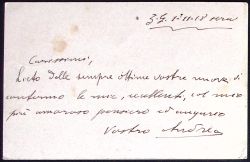 Z.G. 1-11-18 sera
Carissimi,
Lieto delle sempre ottime vostre nuove, vi
confermo le mie, eccellenti, col mio
più amoroso pensiero ed augurio
Vostro Andrea